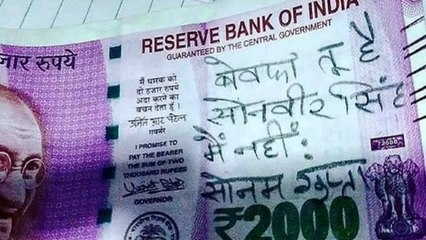 हज़ार रुपये
RESERVE BANK OF INDIA
GUARANTEED BY THE CENTRAL GOVERNMENT
मैं धारक को
दो हज़ार रुपये
अदा करने का
वचन देता हूँ।
उर्जित आर पटेल
गवर्नर
I PROMISE TO
PAY THE BEARER
THE SUM OF TWO
THOUSAND RUPEES
GOVERNOR
बेवफा तू है
सोनवीर सिंह
मैं नहीं!
सोनम गुप्ता
₹2000
₹2000